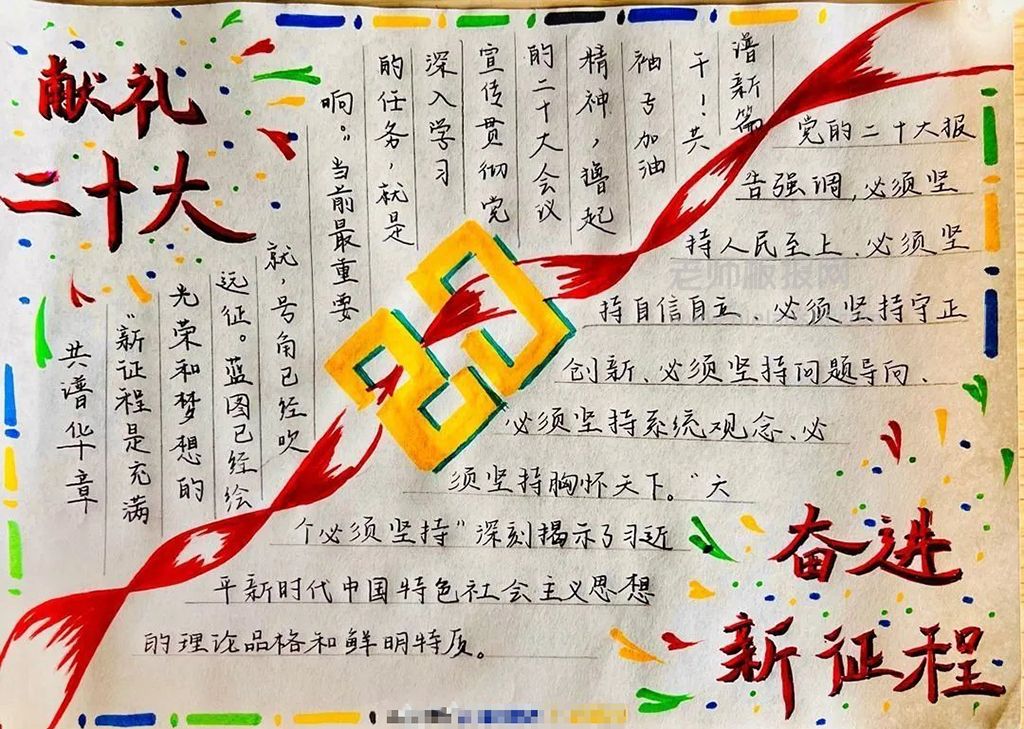 献礼
二十大
共谱华章
“新征程是充满
光荣和梦想的
远征。蓝图已经绘
就,号角已经吹
响。”当前最重要
的任务,就是
深入学习
宣传贯彻党
的二十大会议
精神,撸起
袖子加油
干!共
谱新篇
20
党的二十大报
告强调,必须坚
持人民至上、必须坚
持自信自立、必须坚持守正
创新、必须坚持问题导向、
必须坚持系统观念、必
须坚持胸怀天下。“六
个必须坚持”深刻揭示了习近
平新时代中国特色社会主义思想
的理论品格和鲜明特质。
奋进
新征程
老师板报网